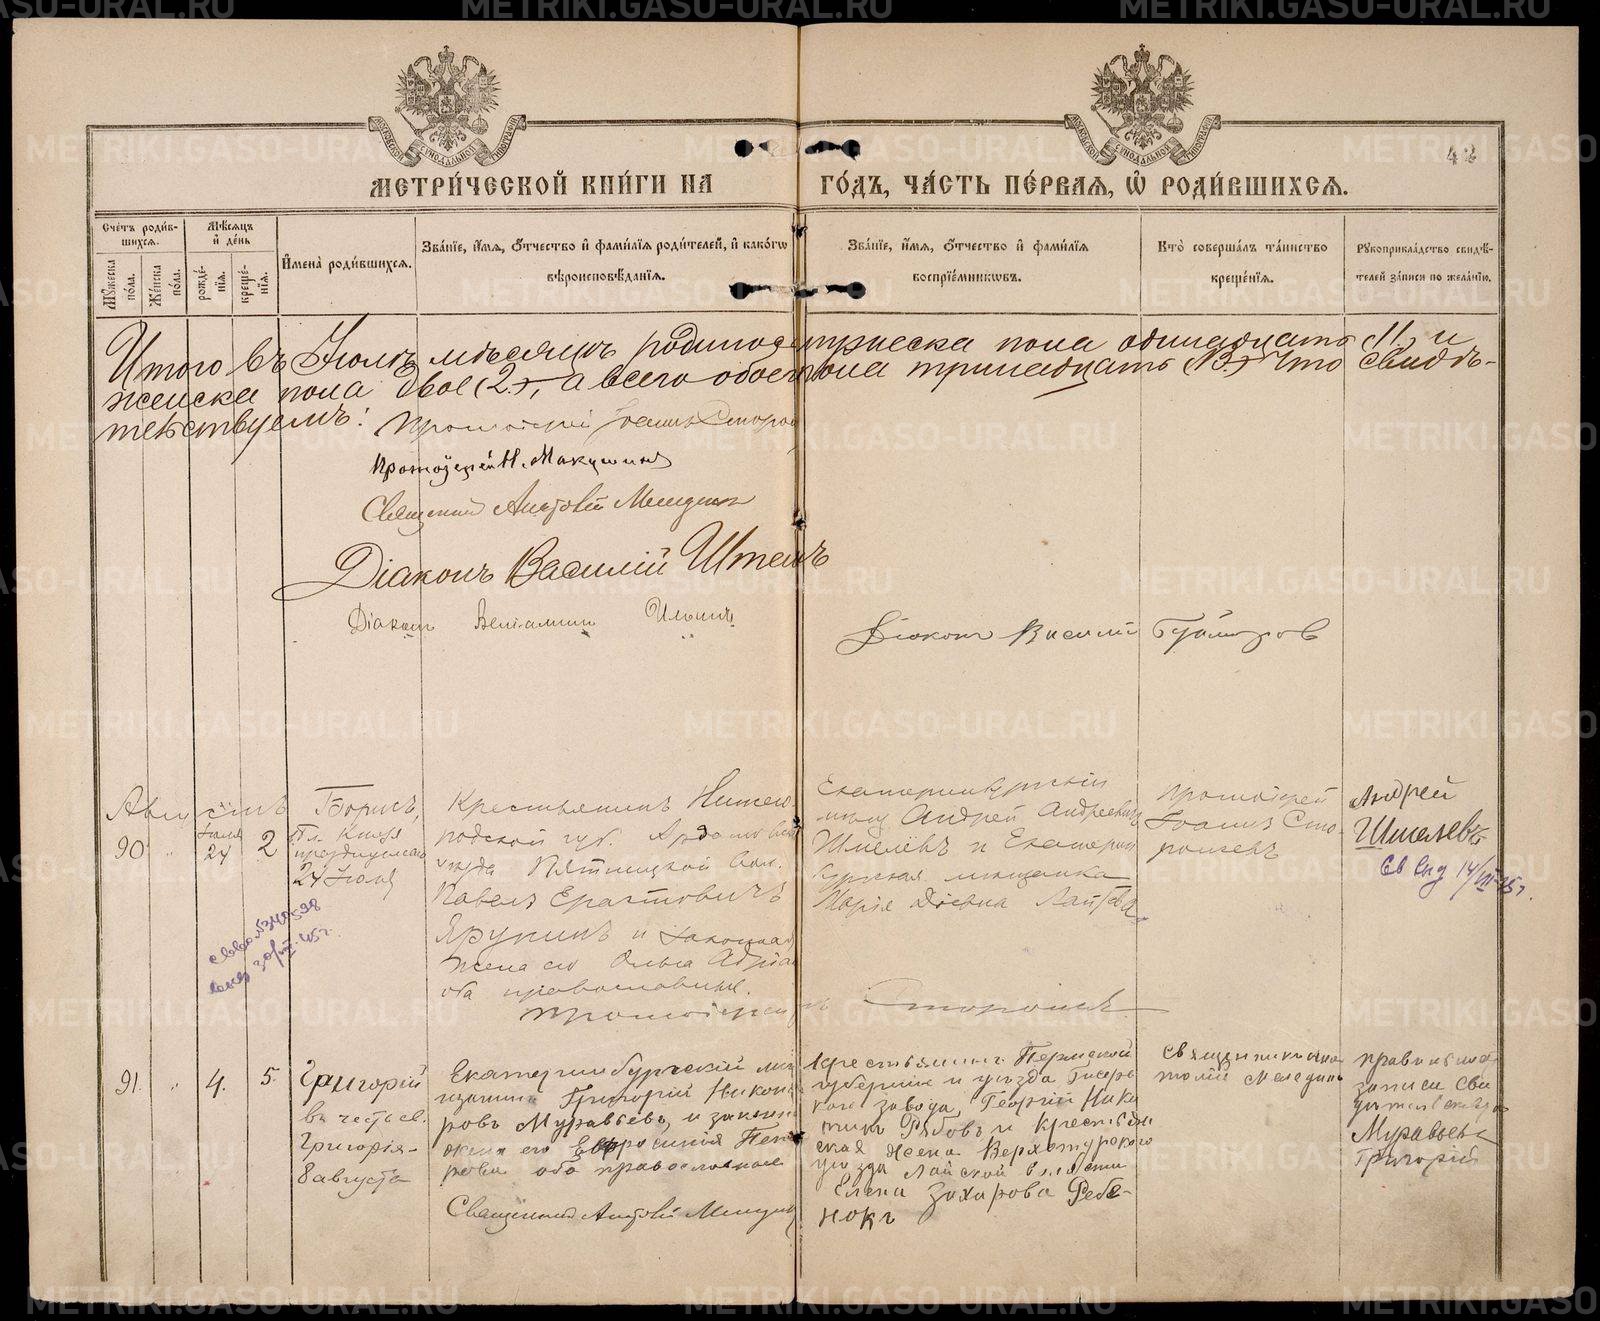 МЕТРИ́ЧЕСКОЙ КНИ́ГИ НА ГО́ДЪ, ЧА́СТЬ ПЕ́РВАЯ, Ѡ РОДИ́ВШИХСЯ.
42
Сче́тъ роди́вшихся.
Му́жеска по́ла.
Же́нска по́ла.
Мѣ́сяцъ и де́нь
рожде́нія.
креще́нія.
Имена̀ роди́вшихся.
Зва́ніе, и́мя, о́тчество и фами́лія роди́телей, и како́гѡ вѣроисповѣ́данія.
Зва́ніе, и́мя, о́тчество и фами́лія воспріе́мникѡвъ.
Кто̀ соверша́лъ та́инство креще́нія.
Рукоприкла́дство свидѣ́телей за́писи по жела́нію.
Итого въ Іюлѣ мѣсяцѣ родилось мужеска пола одинадцать 11. и
женска пола двое (2.), а всего обоего пола тринадцать (13.) Что свидѣ-
тельствуемъ:
Протоіерей Іоаннъ Сторо
Протоіерей Н. Макушинъ
Священникъ Анатолій Меледин
Діаконъ Василій Штенъ
Діаконъ Веніаминъ Ильинъ
Діаконъ Василій
Августъ
90
Іюля
24
2
Борисъ,
Бл. Князя
празднуемаго
24 Іюля
Крестьянинъ Нижего-
родской губ. Ардатовска
уѣзда Пятницкой вол.
Павелъ Ерастовичъ
Ярукинъ и законная
жена его Ольга Адріа
оба православные.
Протоіерей І Сторожевъ
Екатеринбургскій
мѣщ Андрей Андреевичъ
Шмелёвъ и Екатерин
бургская мѣщанка
Марія
Протоіерей
Іоаннъ Сто-
рожевъ
Андрей
Шмелевъ
14/VII-15г.
45г.
91.
4.
5.
Григорій
въ честь св.
Григорія-
8 августа
Екатеринбургскій мѣ
щанинъ Григорій Никоно
ровъ Муравьевъ, и законн
жена его Евфросинія Пет
рова оба православные
Священникъ Анатолій Меледин
Крестьянинъ Пермской
губерніи и уѣзда Бисерь
каго завода, Георгій Ники
тинъ Рябовъ и крестьян
ская жена Верхотурского
уѣзда Лайской волости
Елена Захарова Ребе-
нокъ
Священникъ Ана
толій Меледин
правильность
записи сви
Муравьевъ
Григорій
METRIKI.GASO-URAL.RU